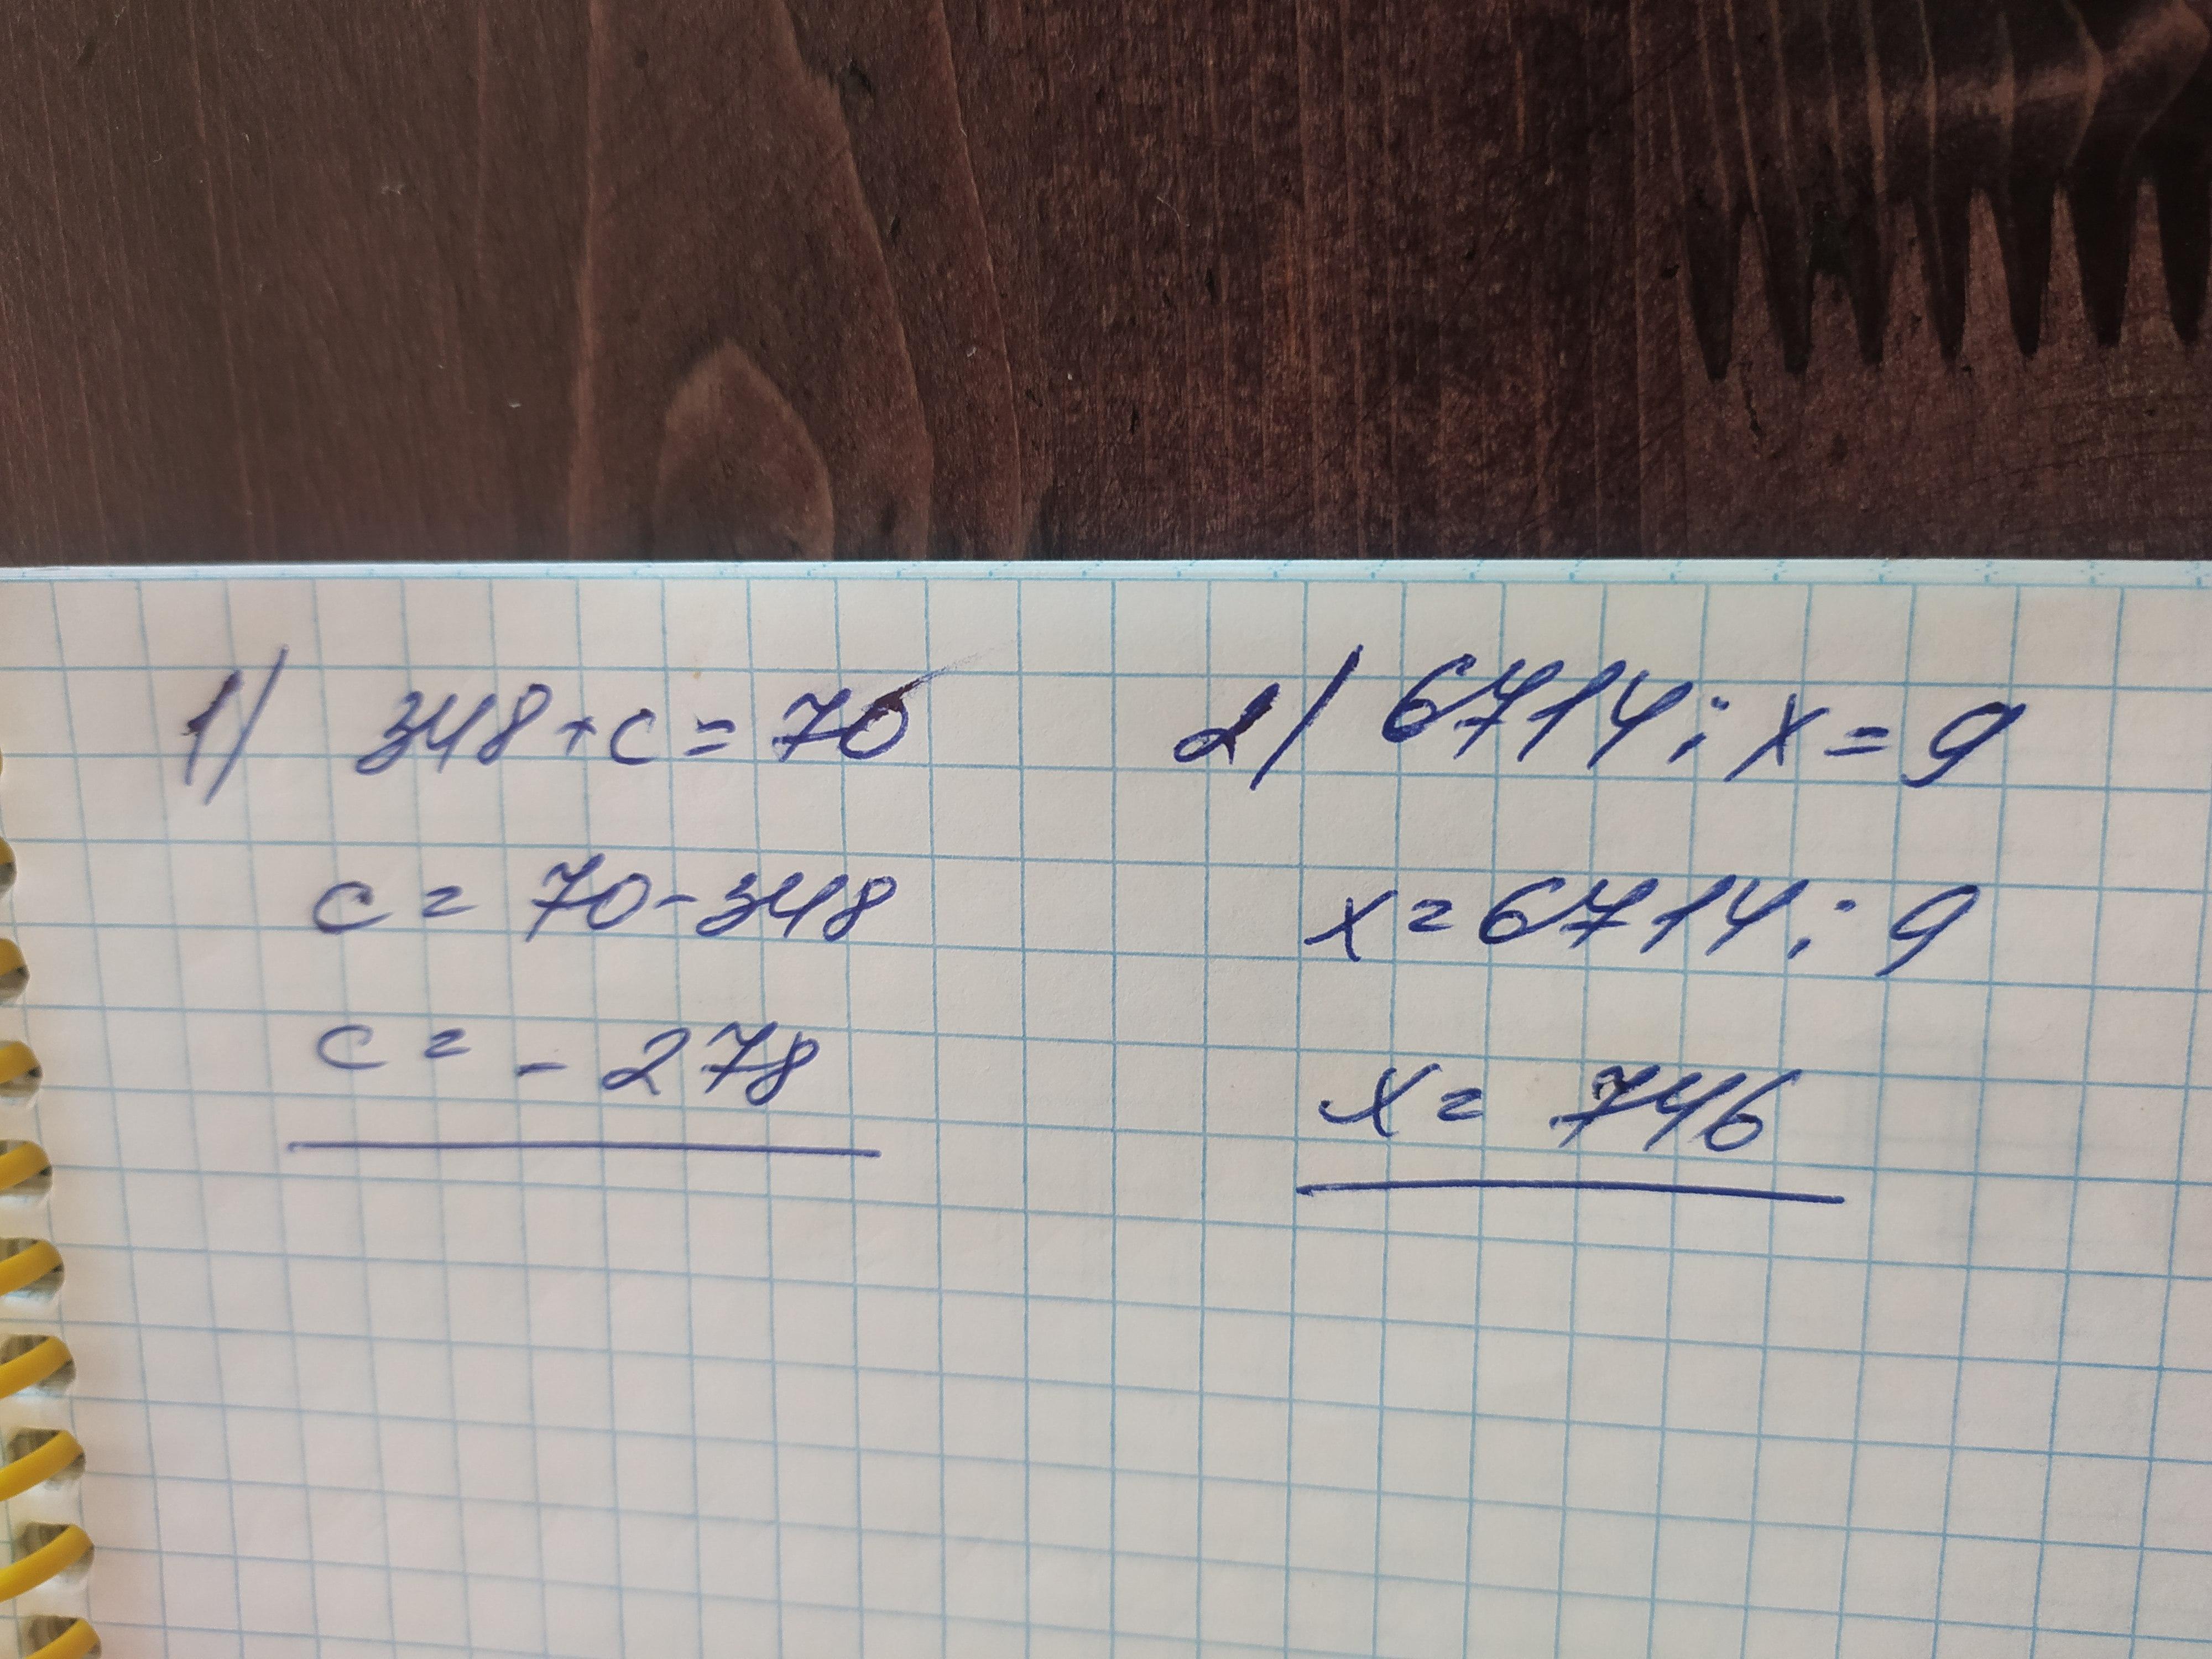 1) 348+c=70
c=70-348
c=-278
2) 6714:x=9
x=6714:9
x=746